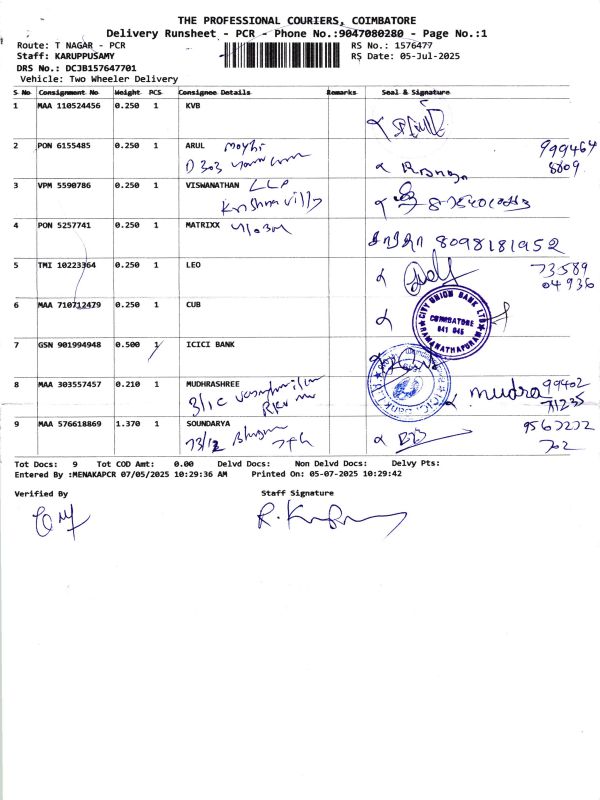 THE PROFESSIONAL COURIERS, COIMBATORE
Delivery Runsheet - PCR - Phone No.:9047080280 - Page No.:1
Route: T NAGAR - PCR RS No.: 1576477
Staff: KARUPPUSAMY RS Date: 05-Jul-2025
DRS No.: DCJB157647701
Vehicle: Two Wheeler Delivery
S No Consignment No Weight PCS Consignee Details Remarks Seal & Signature
1 MAA 110524456 0.250 1 KVB
2 PON 6155485 0.250 1 ARUL 999464
D 303 8809
3 VPM 5590786 0.250 1 VISWANATHAN LLP
Krishna villa
4 PON 5257741 0.250 1 MATRIXX 8098181952
5 TMI 10223364 0.250 1 LEO 73589
04936
6 MAA 710712479 0.250 1 CUB
CITY UNION BANK LTD
COIMBATORE
641 045
RAMANATHAPURAM
7 GSN 901994948 0.500 1 ICICI BANK
8 MAA 303557457 0.210 1 MUDHRASHREE mudra 99402
3/1C 71235
9 MAA 576618869 1.370 1 SOUNDARYA
Tot Docs: 9 Tot COD Amt: 0.00 Delvd Docs: Non Delvd Docs: Delvy Pts:
Entered By :MENAKAPCR 07/05/2025 10:29:36 AM Printed On: 05-07-2025 10:29:42
Verified By Staff Signature